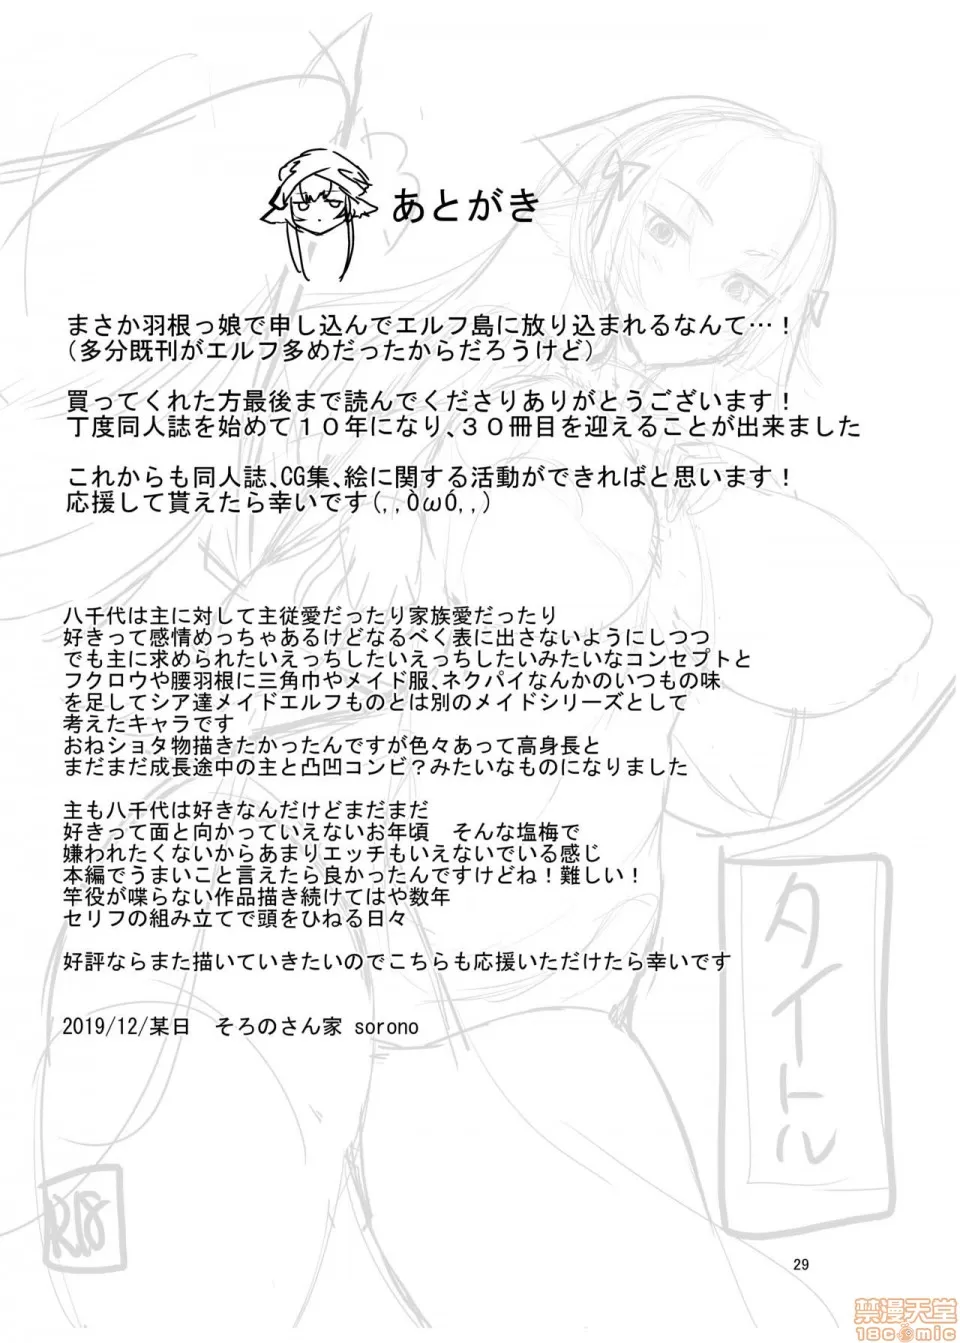 あとがき
まさか羽根っ娘で申し込んでエルフ島に放り込まれるなんて…！
（多分既刊がエルフ多めだったからだろうけど）
買ってくれた方最後まで読んでくださりありがとうございます！
丁度同人誌を始めて１０年になり、３０冊目を迎えることが出来ました
これからも同人誌、CG集、絵に関する活動ができればと思います！
応援して貰えたら幸いです(,,ÒωÓ,,)
八千代は主に対して主従愛だったり家族愛だったり
好きって感情めっちゃあるけどなるべく表に出さないようにしつつ
でも主に求められたいえっちしたいえっちしたいみたいなコンセプトと
フクロウや腰羽根に三角巾やメイド服、ネクパイなんかのいつもの味
を足してシア達メイドエルフものとは別のメイドシリーズとして
考えたキャラです
おねショタ物描きたかったんですが色々あって高身長と
まだまだ成長途中の主と凸凹コンビ？みたいなものになりました
主も八千代は好きなんだけどまだまだ
好きって面と向かっていえないお年頃　そんな塩梅で
嫌われたくないからあまりエッチもいえないでいる感じ
本編でうまいこと言えたら良かったんですけどね！難しい！
竿役が喋らない作品描き続けてはや数年
セリフの組み立てで頭をひねる日々
好評ならまた描いていきたいのでこちらも応援いただけたら幸いです
2019/12/某日　そろのさん家 sorono
タイトル
R18
29
禁漫天堂
18comic